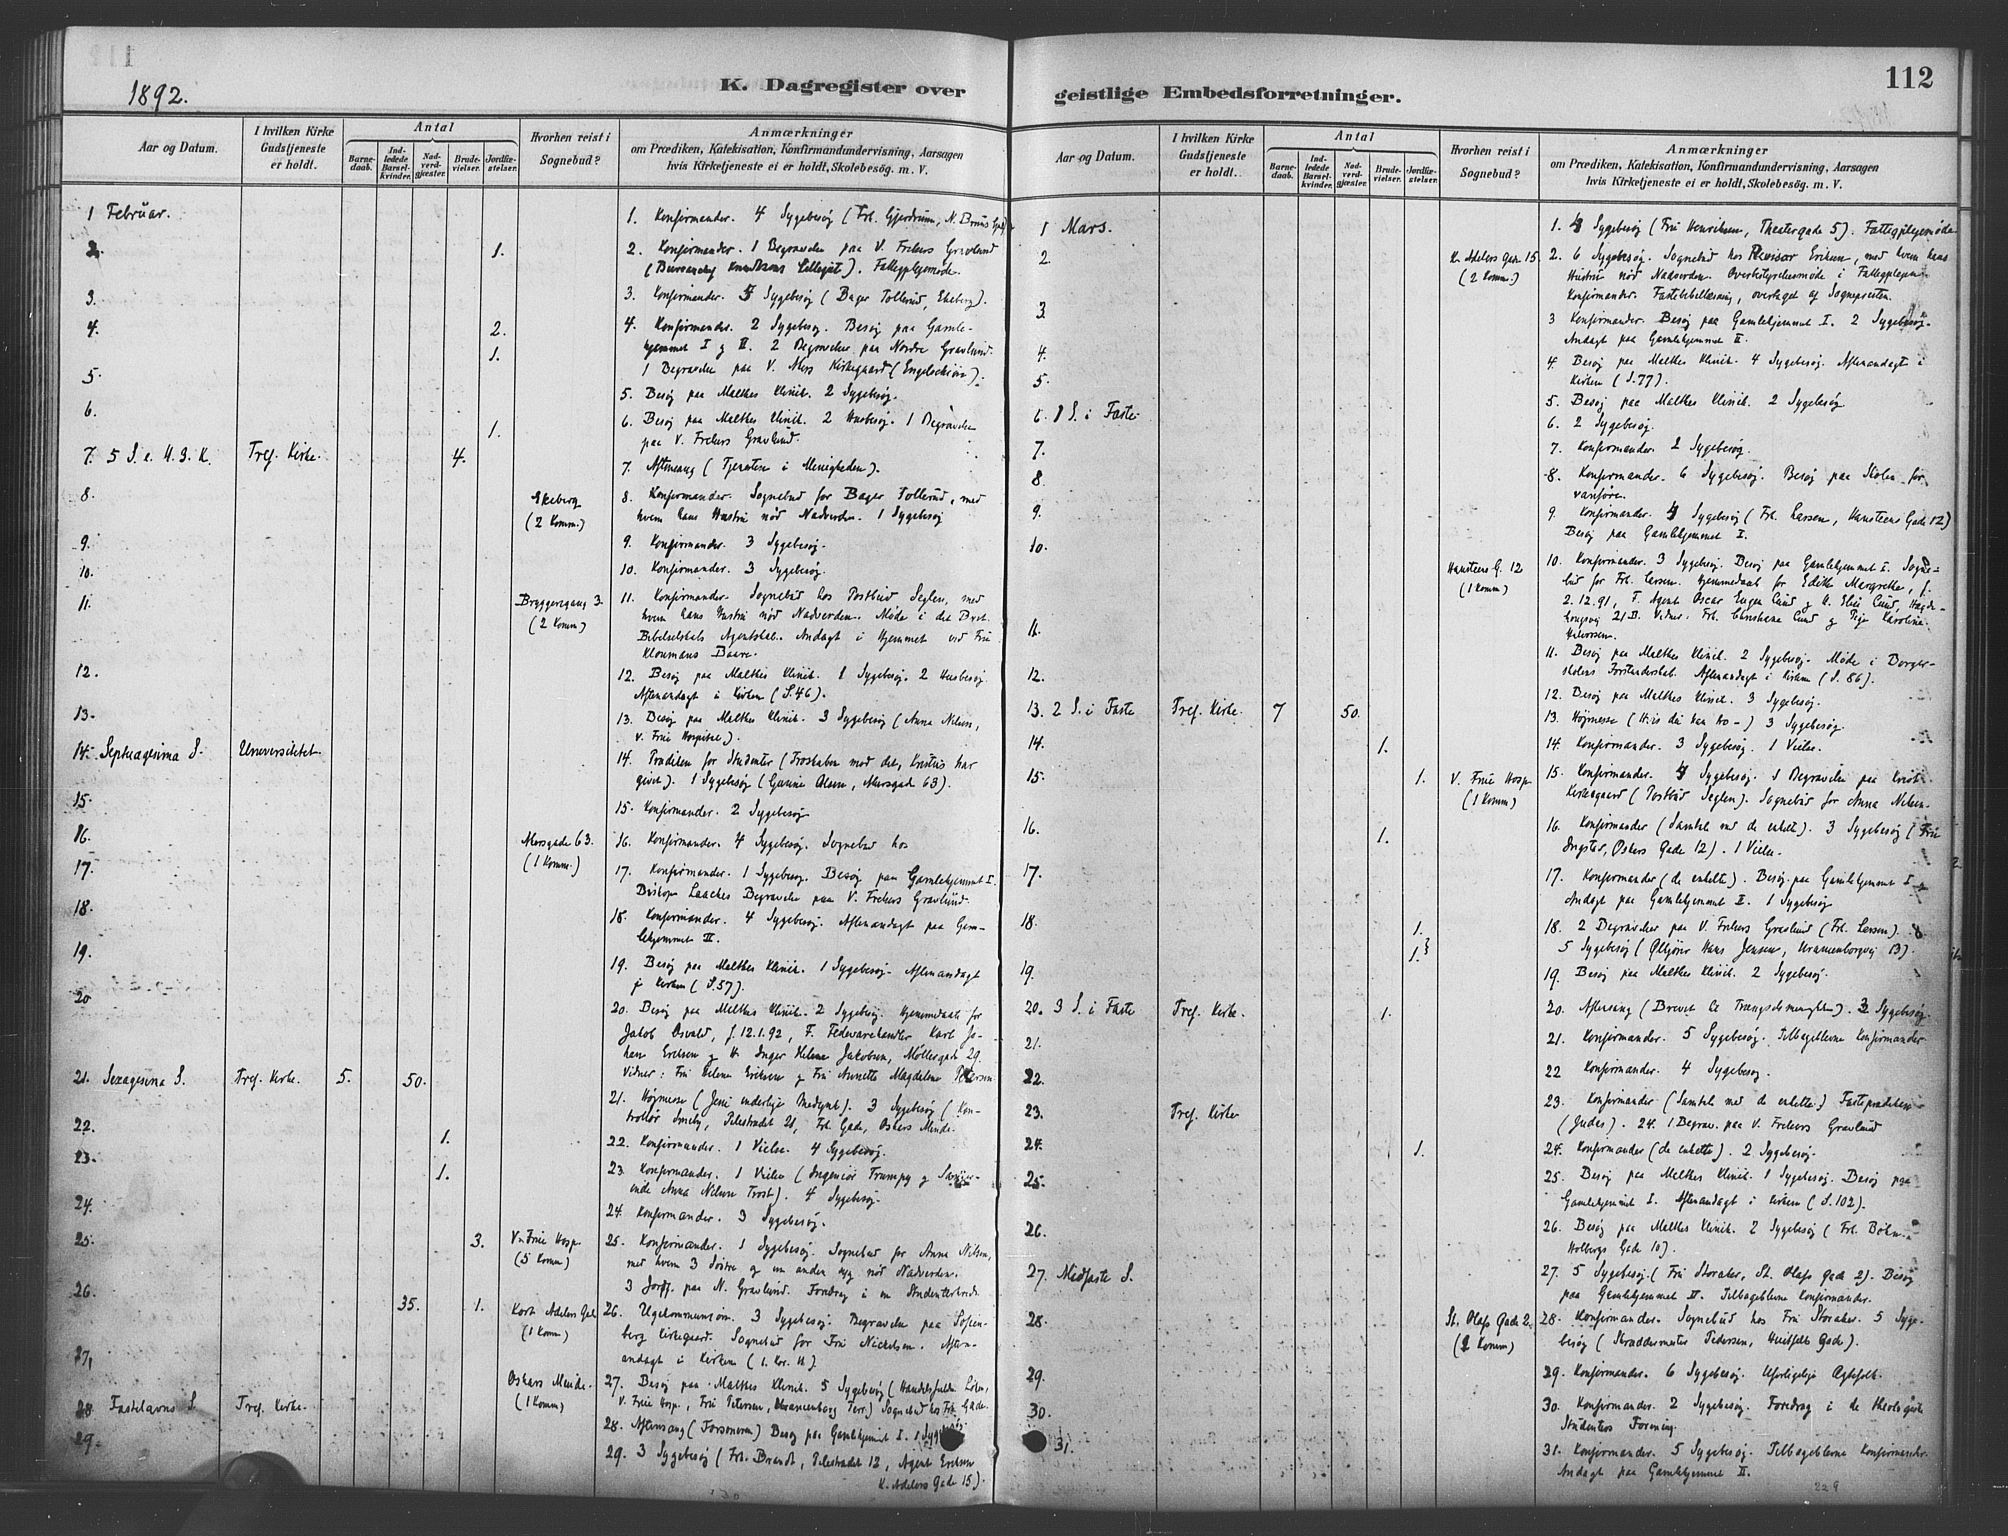 1892.
K. Dagregister over
Aar og Datum.
I hvilken Kirke Gudstjeneste er holdt.
Antal
Barnedaab.
Indledede Barselkvinder.
Nadverdgjæster.
Brudevielser.
Jordfæstelser.
Hvorhen reist i Sognebud?
Anmærkninger
om Prædiken, Katekisation, Konfirmandundervisning, Aarsagen
hvis Kirketjeneste ei er holdt, Skolebesög. m. V.
1 Februar.
1. Konfirmander. 4 Sygebesøg (Frk. Gjerdrum, N. Bruns
2.
1.
2. Konfirmander. 1 Begravelse paa V. Frelsers Gravlund
Fattigplejemøde.
3.
3. Konfirmander. 4 Sygebesøg (Bager Tollerud, Ekeberg).
4.
2.
1.
4. Konfirmander. 2 Sygebesøg. Besøg paa Gamle-
hjemmet I og II. 2 Begravelser paa Nordre Gravlund.
1 Begravelse paa V. Akers Kirkegaard
5.
5. Besøg paa Malthes Klinik. 2 Sygebesøg.
6.
1.
6. Besøg paa Malthes Klinik. 2 Husbesøg. 1 Begravelse
paa V. Frelsers Gravlund.
7. 5 S. e. H. 3. K.
Tref. Kirke.
4.
7. Aftensang (Tjeneste i Menigheden).
8.
Ekeberg
(2 Komm.)
8. Konfirmander. Sognebud for Bager Tollerud, med
hvem hans Hustru nød Nadverden. 1 Sygebesøg
9.
9. Konfirmander. 3 Sygebesøg.
10.
10. Konfirmander. 3 Sygebesøg.
11.
Bryggerigang 3.
(2 Komm)
11. Konfirmander. Sognebud hos Postbud Seglen, med
hvem hans Hustru nød Nadverden. Møde i det Brit.
Bibelselskabs Agentskab. Andagt i Hjemmet ved Fru
Kloumans Baare.
12.
12. Besøg paa Malthes Klinik. 1 Sygebesøg. 2 Husbesøg.
Aftenandagt i Kirken (S. 46).
13.
13. Besøg paa Malthes Klinik. 3 Sygebesøg (Anna Nilsen,
V. Frue Hospital).
14. Septuagesima S.
Universitetet
14. Prædiken for Studenter (Troskaben mod det, Kristus har
givet). 1 Sygebesøg (Gurine Olsen, Akersgade 63).
15.
15. Konfirmander. 2 Sygebesøg
16.
Akersgade 63.
(1 Komm.)
16. Konfirmander. 4 Sygebesøg. Sognebud hos
17.
17. Konfirmander. 1 Sygebesøg. Besøg paa Gamlehjemmet I.
Biskop Laaches Begravelse paa V. Frelsers Gravlund.
18.
18. Konfirmander. 4 Sygebesøg. Aftenandagt paa Gam-
lehjemmet II.
19.
19. Besøg paa Malthes Klinik. 1 Sygebesøg. Aftenandagt
i Kirken (S. 57).
20
20. Besøg paa Malthes Klinik. 2 Sygebesøg. Hjemmedaab for
Jakob Osvald, f. 12.1.92, F. Fedevarehandler Karl Jo-
han Eriksen og H. Inger Helene Jakobsen, Møllergade 29.
Vidner: Fru Helene Eriksen og Fru Annette Magdalene Petersen
21. Sexagesima S.
Tref. Kirke.
5.
50.
21. Højmesse (Jesu underlige Medynk). 3 Sygebesøg (Kon-
trollør Smeby, Pilestrædet 21, Frk. Gade, Oskars Minde.
22.
1.
22. Konfirmander. 1 Vielse. 4 Sygebesøg.
23.
1.
23. Konfirmander. 1 Vielse (Ingeniør Trumpy og
Anna Nilsine Trost). 4 Sygebesøg.
24.
24. Konfirmander. 3 Sygebesøg.
25
3.
V. Frue Hosp.
(5 Komm)
25. Konfirmander. 1 Sygebesøg. Sognebud for Anna Nilsen,
med hvem 3 Søstre og en anden syg nød Nadverden.
3 Jordf. paa N. Gravlund. Foredrag i en Studenterkreds.
26.
35.
1.
Kort Adelers Gd.
(1 Komm)
26. Ugekommunion. 3 Sygebesøg. Begravelse paa Sofien-
berg Kirkegaard. Sognebud for Fru Nickelsen. Aften-
andagt i Kirken (1. Kor. 11).
27,
Oskars Minde.
(1 Komm)
27. Besøg paa Malthes Klinik. 5 Sygebesøg
V. Frue Hosp., Fru Petersen, Uranienborg Terr.) Sognebud hos Frk. Gade.
28 Fastelavns S.
Tref. Kirke.
28. Aftensang (Forsoneren) Besøg paa Gamlehjemmet I.
29.
29. 3 Sygebesøg (Frk. Brandt, Pilestrædet 12, Agent Eriksen
K. Adelers Gade 15).
112
geistlige Embedsforretninger.
Aar og Datum.
I hvilken Kirke Gudstjeneste er holdt.
Antal
Barnedaab.
Indledede Barselkvinder.
Nadverdgjæster.
Brudevielser.
Jordfæstelser.
Hvorhen reist i Sognebud?
Anmærkninger
om Prædiken, Katekisation, Konfirmandundervisning, Aarsagen
hvis Kirketjeneste ei er holdt, Skolebesög. m. V.
1 Mars.
1. 4 Sygebesøg (Fru Henriksen, Theatergade 5). Fattigplejemøde
2.
K. Adelers Gade 15
(2 Komm.)
2. 6 Sygebesøg. Sognebud hos Revisor Eriksen, med hvem hans
Hustru nød Nadverden. Overbestyrelsesmøde i Fattigplejen
Konfirmander. Fastebibellæsning, overtaget af Sognepresten.
3.
3 Konfirmander. Besøg paa Gamlehjemmet I. 2 Sygebesøg.
Andagt paa Gamlehjemmet II.
4.
4. Besøg paa Malthes Klinik. 4 Sygebesøg. Aftenandagt i
Kirken (S. 77).
5.
5. Besøg paa Malthes Klinik. 2 Sygebesøg
6. 1 S. i Faste
6. 2 Sygebesøg.
7.
7. Konfirmander. 2 Sygebesøg.
8.
8. Konfirmander. 6 Sygebesøg. Besøg paa Skolen for
vanføre.
9.
9. Konfirmander. 4 Sygebesøg (Frk. Larsen, Hansteens Gade 12)
Besøg paa Gamlehjemmet I.
10.
Hansteens G. 12
(1 Komm)
10. Konfirmander. 3 Sygebesøg. Besøg paa Gamlehjemmet I. Sogne-
bud for Frk. Larsen. Hjemmedaab for Edith Margrethe, f.
2.12.91, F. Agent Oscar Eugen Lund og H. Elise Lund, Hægde-
hougsvej 21 B. Vidner: Frk. Christiane Lund og Pige Karoline
Halvorsen.
11.
11. Besøg paa Malthes Klinik. 2 Sygebesøg. Møde i Borger-
skolens Forstanderskab. Aftenandagt i Kirken (S. 86).
12.
12. Besøg paa Malthes Klinik. 3 Sygebesøg.
13. 2 S. i Faste
Tref. Kirke.
7
50.
13. Højmesse (Hvis du kan tro –) 3 Sygebesøg
14.
1.
14. Konfirmander. 3 Sygebesøg. 1 Vielse.
15.
1.
V. Frue Hosp.
(1 Komm)
15. Konfirmander. 4 Sygebesøg. 1 Begravelse paa Krist
Kirkegaard (Postbud Seglen). Sognebud for Anna Nilsen.
16.
1.
16. Konfirmander (Samtale med de enkelte). 3 Sygebesøg (Fru
Ingstad, Oskars Gade 12). 1 Vielse.
17.
17. Konfirmander (de enkelte). Besøg paa Gamlehjemmet I
Andagt paa Gamlehjemmet II. 1 Sygebesøg
18.
1.
1.
18. 2 Begravelser paa V. Frelsers Gravlund (Frk. Larsen).
5 Sygebesøg (Hans Jensen, Uranienborgvej 13).
19.
19. Besøg paa Malthes Klinik. 2 Sygebesøg.
20. 3 S. i Faste
Tref. Kirke.
1.
20. Aftensang (Brevet til Trængselsmenigheden). 3 Sygebesøg.
21.
21. Konfirmander. 5 Sygebesøg. Tilbageblevne Konfirmander.
22.
22 Konfirmander. 4 Sygebesøg.
23.
Tref. Kirke
23. Konfirmander (Samtale med de enkelte) Fasteprædiken
(Judas). 24. 1 Begrav. paa V. Frelsers Gravlund
24.
1.
24. Konfirmander (de enkelte). 2 Sygebesøg.
25.
25. Besøg paa Malthes Klinik. 1 Sygebesøg. Besøg paa
Gamlehjemmet I. Aftenandagt i Kirken (S. 102).
26.
26. Besøg paa Malthes Klinik. 2 Sygebesøg (Frk. Bøhn,
Holbergs Gade 10).
27. Midfaste S.
27. 5 Sygebesøg (Fru Storaker, St. Olafs Gade 2). Besøg
paa Gamlehjemmet II. Tilbageblevne Konfirmander.
28.
St. Olafs Gade 2.
(2 Komm)
28. Konfirmander. Sognebud hos Fru Storaker. 5 Syge-
besøg (Skræddermester Pedersen, Huitfeldts Gade).
29.
29. Konfirmander. 6 Sygebesøg. Uforligelige Ægtefolk.
30.
30. Konfirmander. 2 Sygebesøg. Foredrag i de theologiske
Studenters Forening.
31.
31. Konfirmander. 5 Sygebesøg. Tilbageblevne Konfirmander.
Andagt paa Gamlehjemmet II.
229